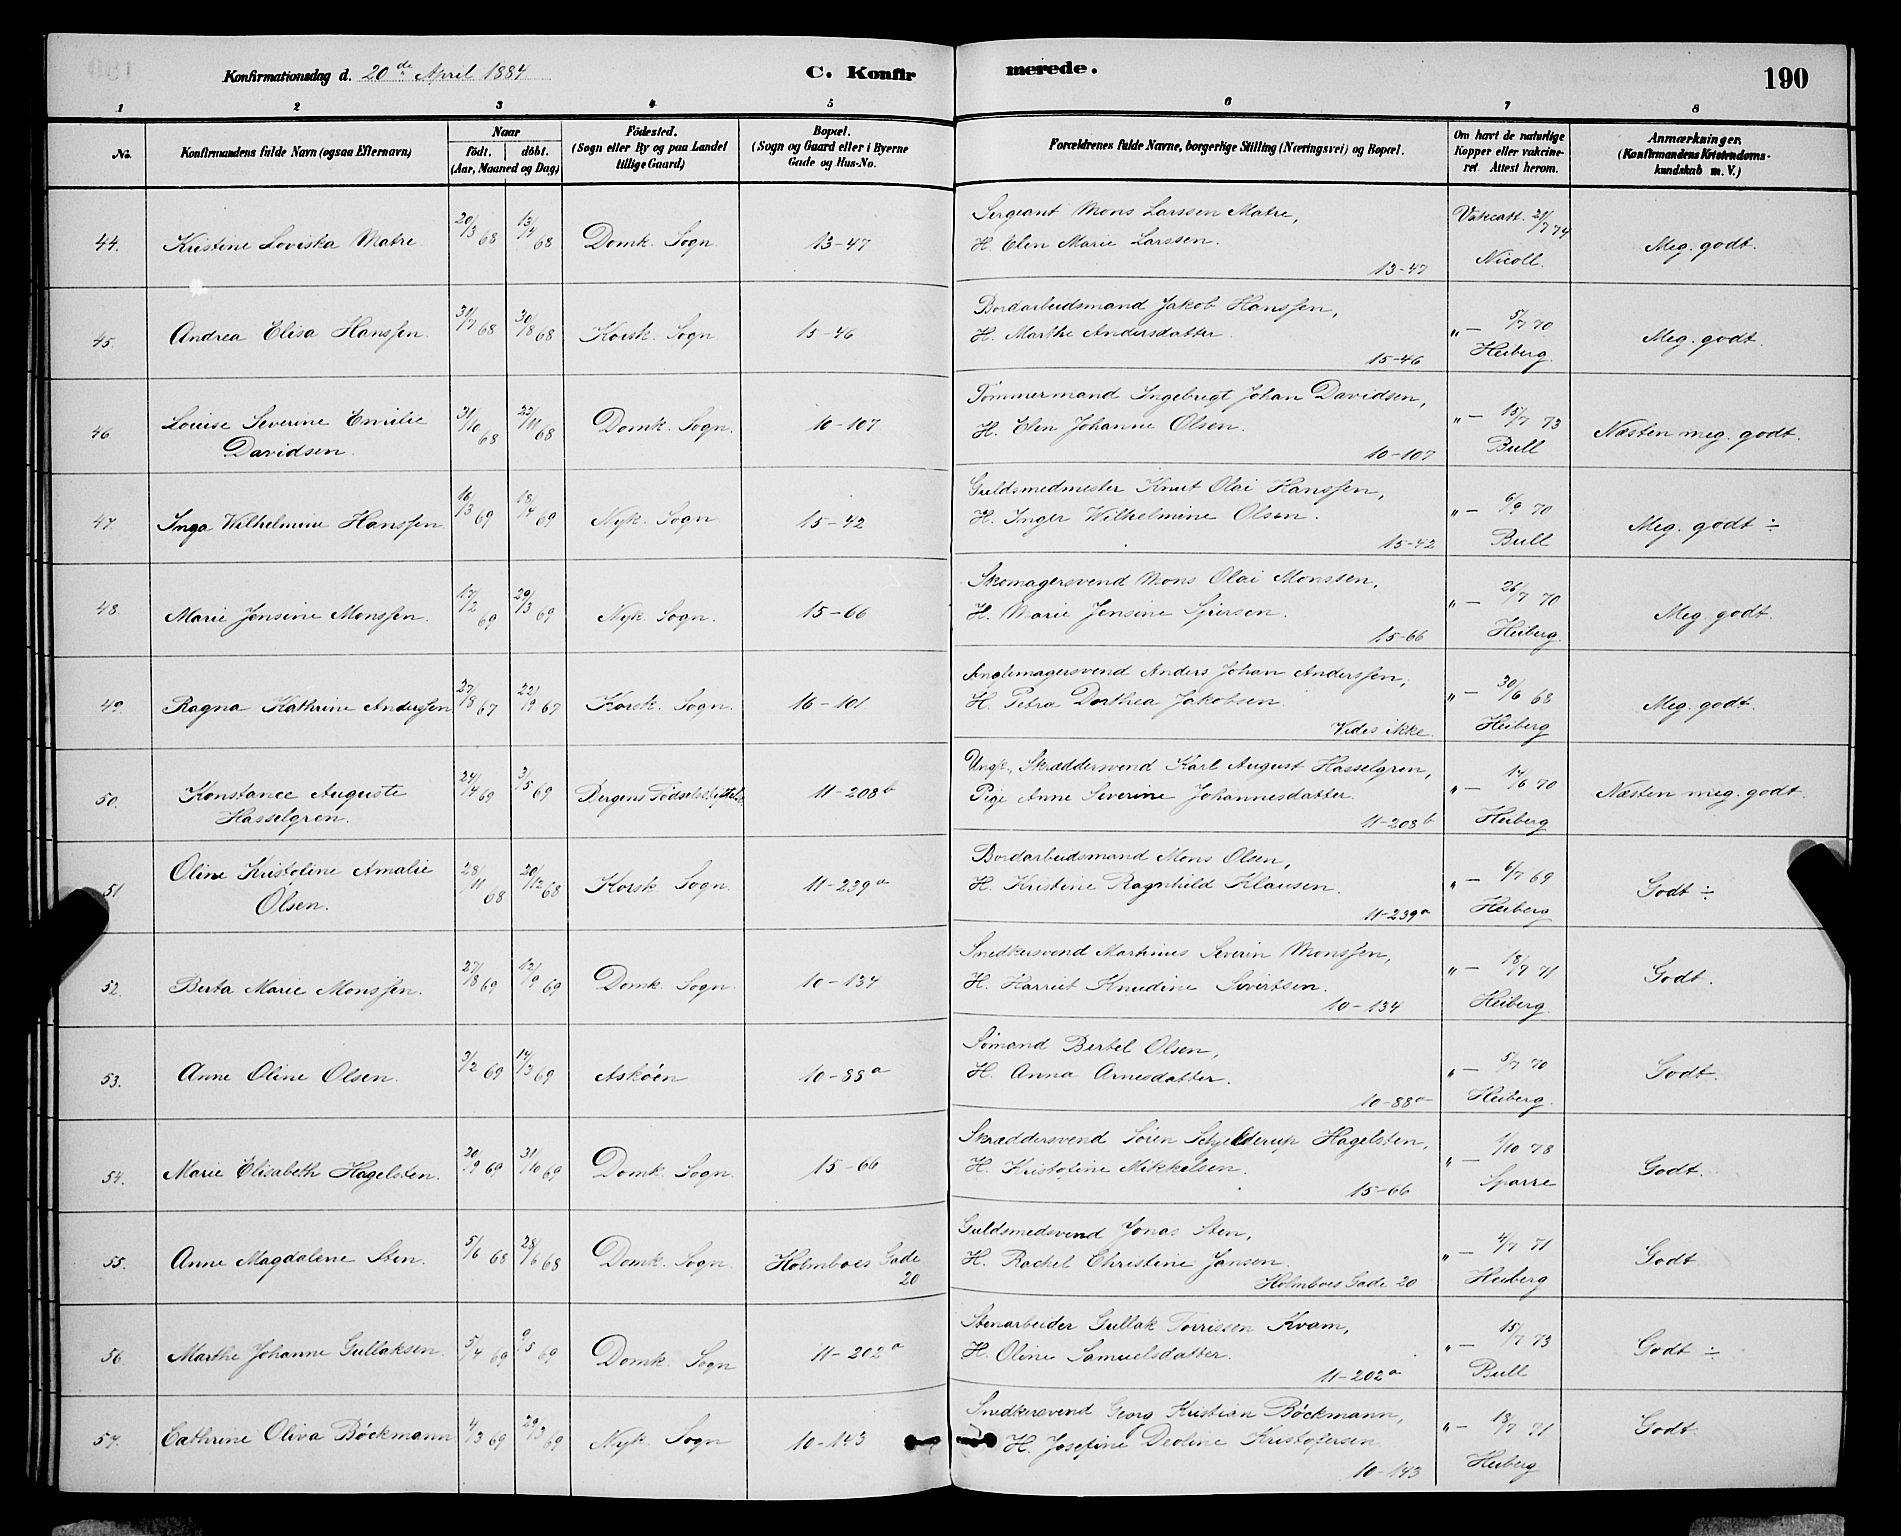 Konfirmationsdag d. 20de April 1884 C. Konfirmerede. 190
1 2 3 4 5 6 7 8
No. Konfirmandens fulde Navn (ogsaa Efternavn) Naar födt. döbt. (Aar, Maaned og Dag) Födested. (Sogn eller By og paa Landet tillige Gaard) Bopæl. (Sogn og Gaard eller i Byerne Gade og Hus-No. Forældrenes fulde Navne, borgerlige Stilling (Næringsvei) og Bopæl. Om havt de naturlige Kopper eller vakcineret Attest herom. Anmærkninger. (Konfirmandens Kristendomskundskab m. V.)
44. Kristine Loviska Matre 20/3 68 13/4 68 Domk. Sogn 13-47 Sergeant Mons Larssen Matre, Vakcatt. 21/7 74 Meg. godt.
H. Elen Marie Larssen.
13-47 Nicoll.
45. Andrea Elisa Hanssen. 31/7 68 30/8 68 Korsk. Sogn 15-46 Bordarbeidsmand Jakob Hanssen, " — 5/7 70 Meg. godt.
H. Marthe Andersdatter.
15-46 Heiberg.
46. Louise Severine Emilie 31/10 68 22/11 68 Domk. Sogn. 10-107 Tömmermand Ingebrigt Johan Davidsen, " — 15/7 73 Næsten meg. godt.
Davidsen. H. Elen Johanne Olsen.
10-107 Bull
47. Inga Wilhelmine Hanssen 16/3 69 18/4 69 Nyk. Sogn. 15-42 Guldsmedmester Knut Olai Hanssen, " — 6/9 70 Meg. godt ÷
H. Inger Wilhelmine Olsen.
15-42 Bull
48. Marie Jensine Monssen. 17/2 69 29/3 69 Nyk. Sogn. 15-66 Skomagersvend Mons Olai Monssen, " — 26/7 70 Meg. godt.
H. Marie Jensine
15-66 Heiberg.
49. Ragna Kathrine Anderssen 27/8 67 22/9 67 Korsk. Sogn. 16-101 Anders Johan Anderssen, " — 30/6 68 Meg. godt.
H. Petra Dorthea Jakobsen
Vides ikke. Heiberg
50. Konstance Auguste 24/4 69 3/5 69 Bergens 11-208b Ungk. Skræddersvend Karl August Hasselgren, " — 14/6 70 Næsten meg. godt.
Hasselgren. Pige Anne Severine Johannesdatter.
11-208b Heiberg
51. Oline Kristoline Amalie 28/11 68 20/12 68 Korsk. Sogn. 11-239a Bordarbeidsmand Mons Olsen, " — 6/7 69 Godt ÷
Olsen. H. Kristine Ragnhild Klausen.
11-239a Heiberg
52. Berta Marie Monssen. 27/8 69 12/9 69 Domk. Sogn. 10-134 Snedkersvend Martinus Severin Monssen, " — 18/7 71 Godt.
H. Harriet Knudine Sivertsen.
10-134 Heiberg
53. Anne Oline Olsen. 3/2 69 14/3 69 Asköen 10-88a Sömand Bertel Olsen, " — 5/7 70 Godt.
H. Anna Arnesdatter.
10-88a Heiberg.
54. Marie Elisabeth Hagelsten. 20/9 69 31/10 69 Domk. Sogn. 15-66 Skræddersvend Sören Schjelderup Hagelsten, " — /10 78 Godt.
H. Kristofine Mikkelsen.
15-66 Sparre
55. Anne Magdalene Sten. 5/6 68 28/6 68 Domk. Sogn Holmboes Gade 20 Guldsmedsvend Jonas Sten, " — 4/7 71 Godt
H. Rachel Christine Jansen.
Holmboes Gade 20 Heiberg
56. Marthe Johanne Gullaksen. 5/4 69 9/5 69 Domk. Sogn 11-202a Stenarbeider Gullak Torrissen Kvam, " — 15/7 73 Godt ÷
H. Oline Samuelsdatter.
11-202a Bull
57. Cathrine Oliva Böckmann 4/3 69 29/3 69 Nyk. Sogn 10-143 Snedkersvend Georg Kristian Böckmann, " — 18/7 71 Godt.
H. Josefine Deoline Kristofersen
10-143 Heiberg